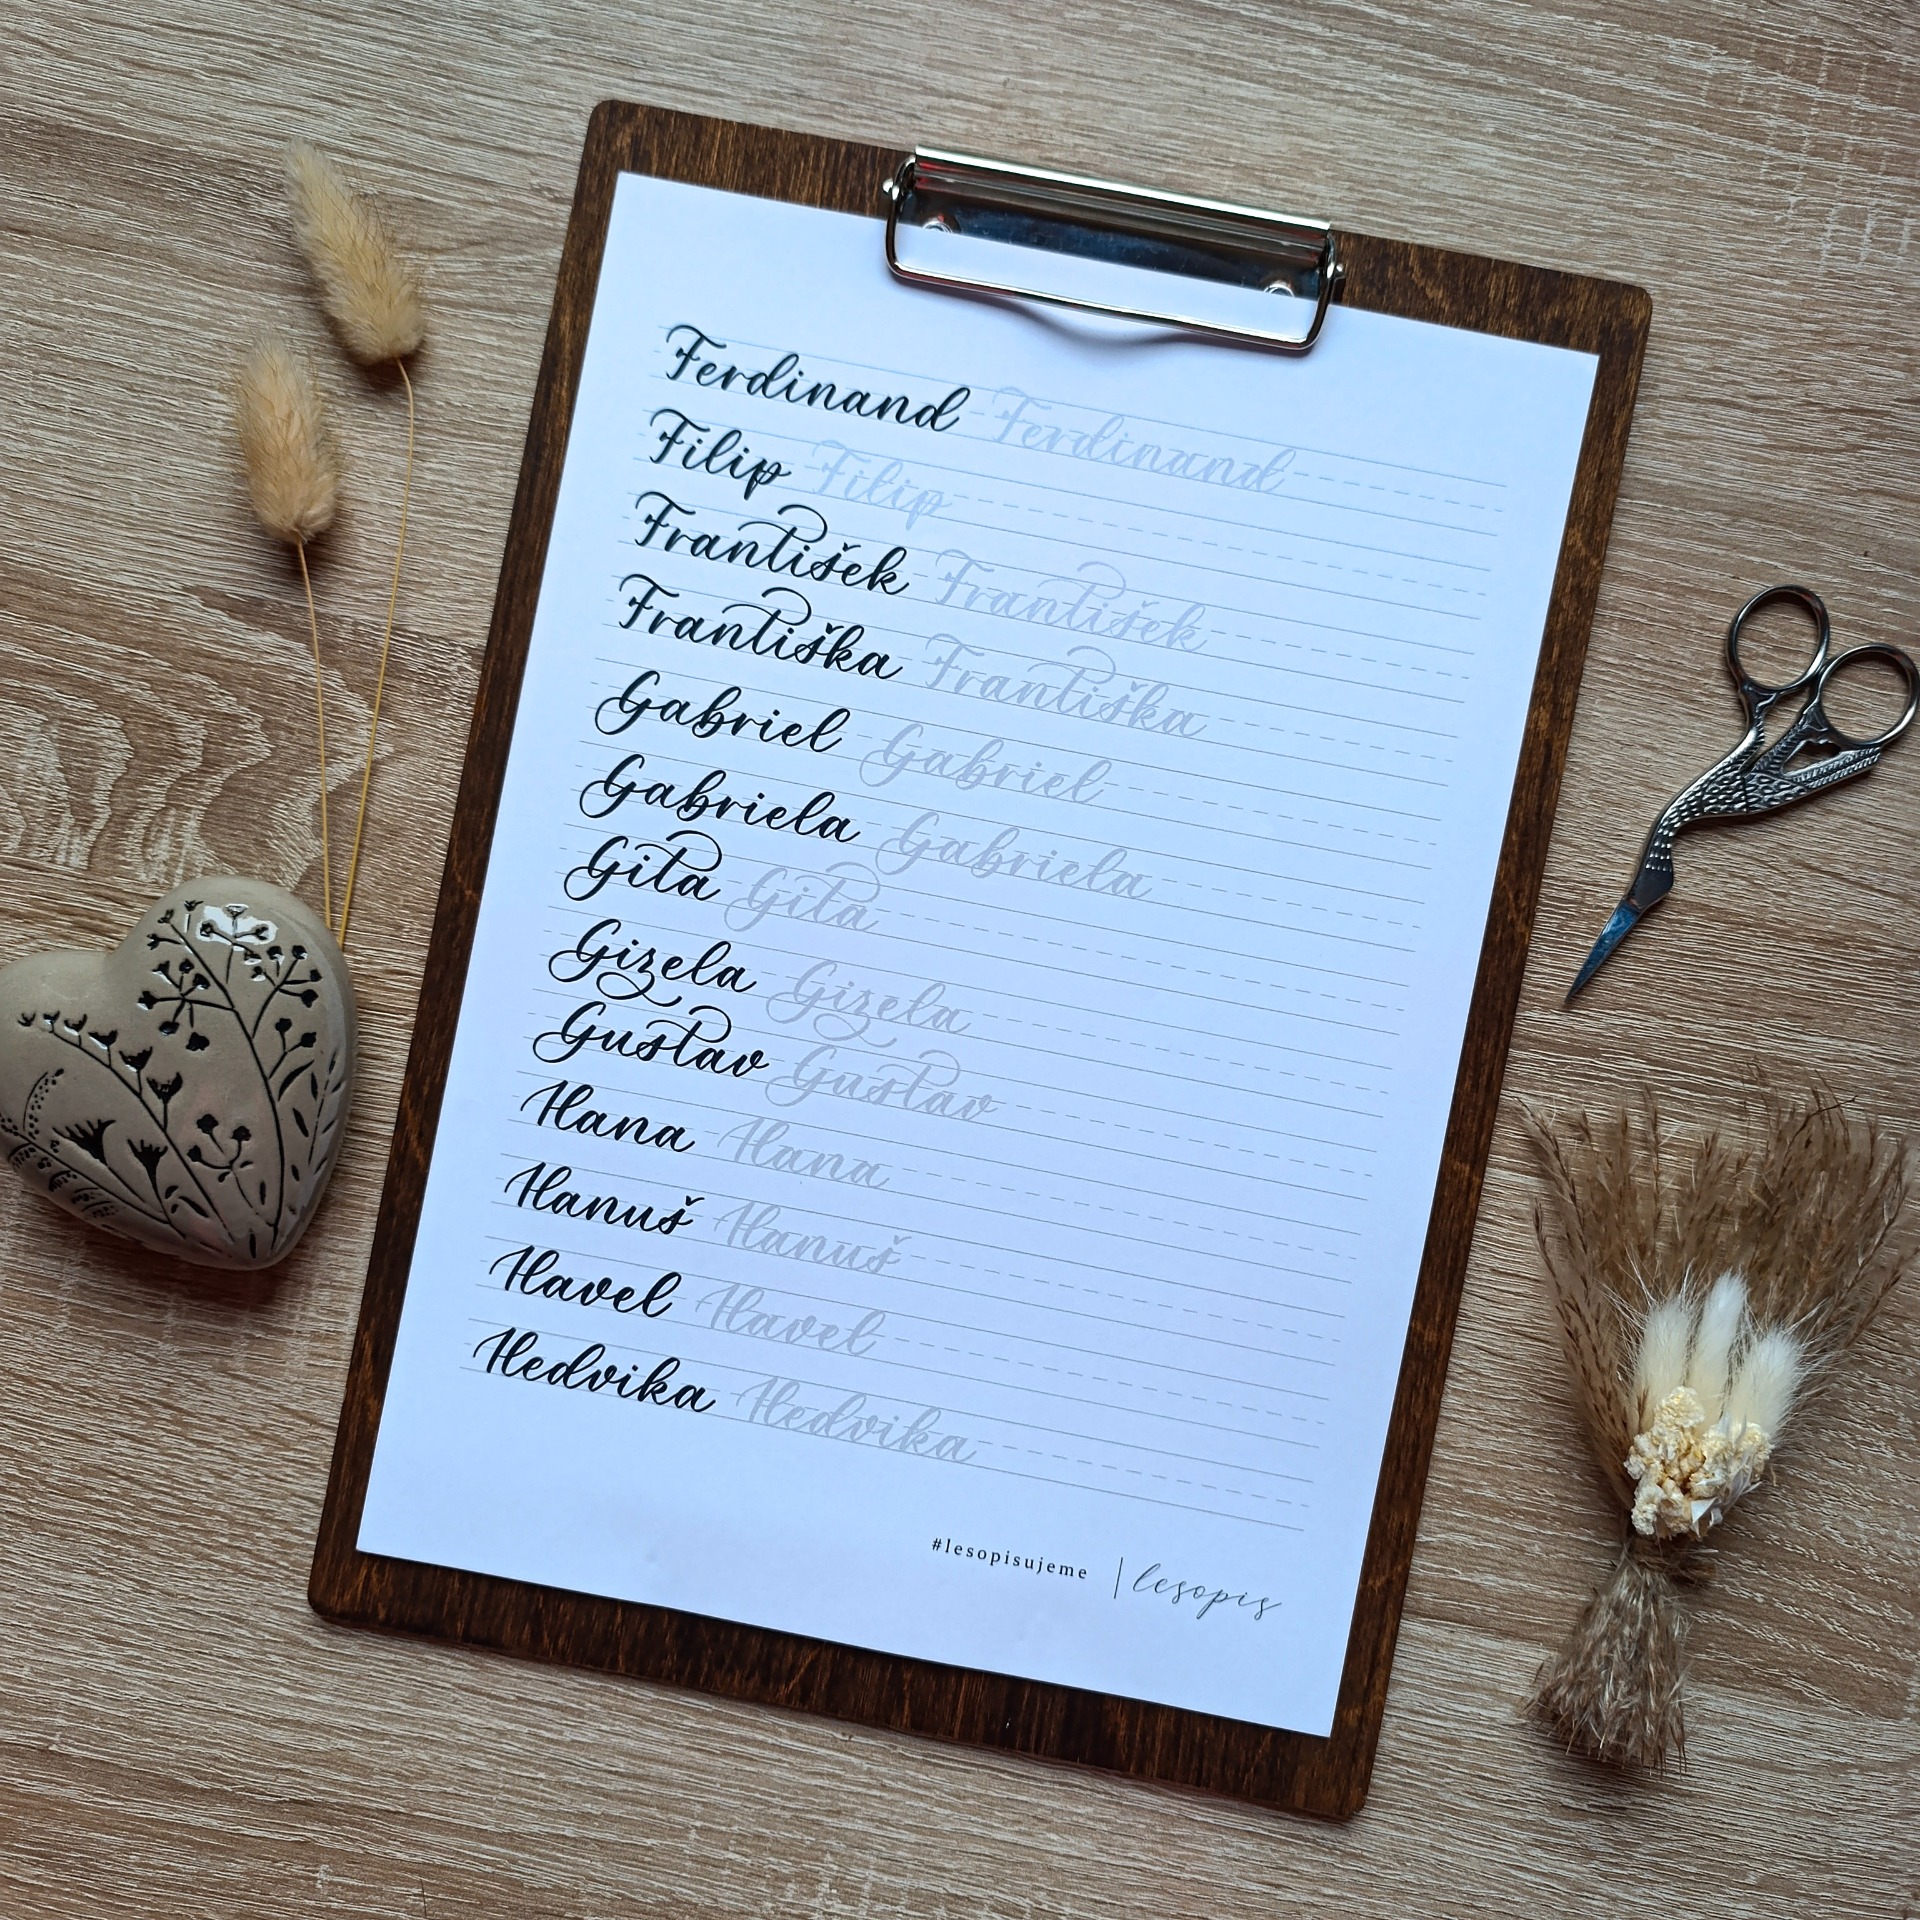 Ferdinand Ferdinand
Filip Filip
František František
Františka Františka
Gabriel Gabriel
Gabriela Gabriela
Gita Gita
Gizela Gizela
Gustav Gustav
Hana Hana
Hanuš Hanuš
Havel Havel
Hedvika Hedvika
#lesopisujeme | lesopis